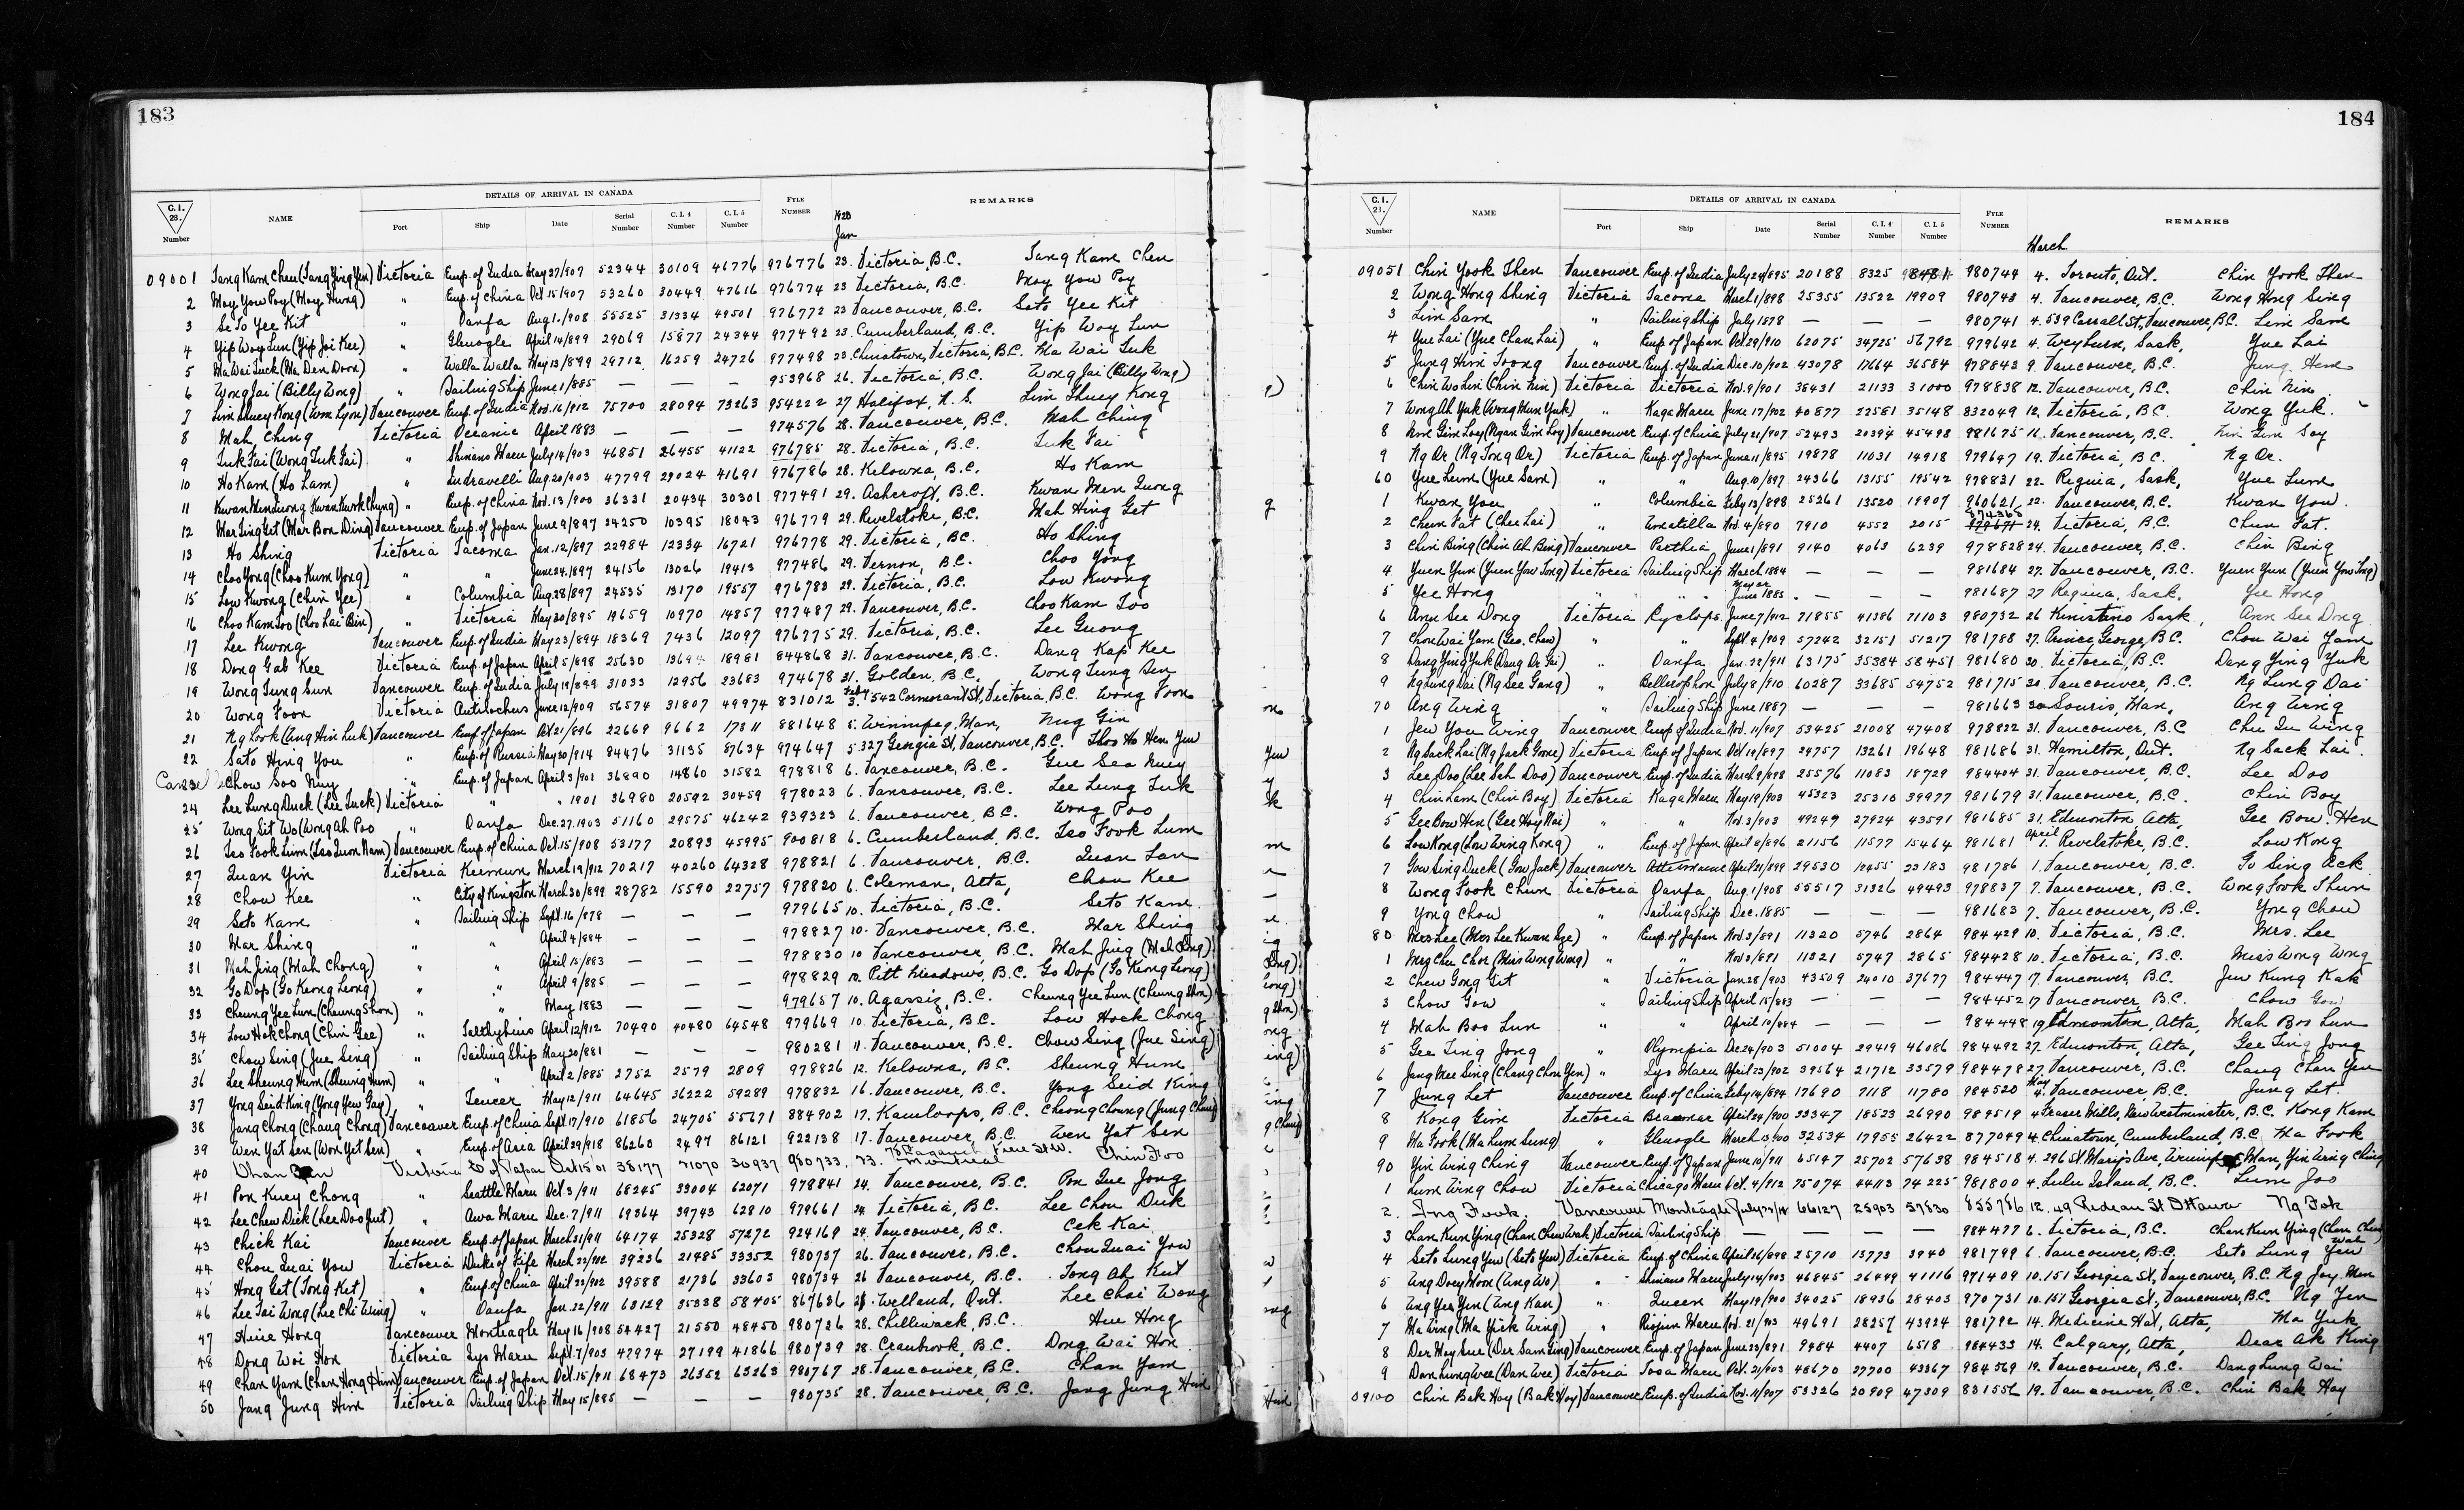 183
DETAILS OF ARRIVAL IN CANADA
C.I. 28. Number NAME Port Ship Date Serial Number C.I. 4 Number C.I. 5 Number FYLE NUMBER REMARKS
1920 Jan
09001 Tang Kam Chen (Tang Ying Yen) Victoria Emp. of India May 27/907 52344 30109 46776 976776 23. Victoria, B.C. Tang Kam Chen
2 Moy You Poy (Moy Hung) " Emp. of China Oct 15/907 53260 30449 47616 976774 23 Victoria, B.C. Moy You Poy
3 Se To Yee Kit " Oanfa Aug 1./908 55525 31334 49501 976772 23 Vancouver, B.C. Seto Yee Kit
4 Yip Woy Lun (Yip Joi Kee) " Glenogle April 14/899 29069 15877 24344 977492 23. Cumberland, B.C. Yip Woy Lun
5 Ma Wai Tuck (Ma Den Doon) " Walla Walla May 13/899 29712 16259 24726 977498 23. Chinatown, Victoria, B.C. Ma Wai Tuk
6 Wong Jai (Billy Wong) " Sailing Ship June 1/885 — — — 953968 26. Victoria, B.C. Wong Jai (Billy Wong)
7 Lim Shuey Kong (Wm Lyon) Vancouver Emp. of India Nov. 16/912 75700 28094 73263 954222 27 Halifax, N.S. Lim Shuey Kong
8 Mah Ching Victoria Oceanic April 1883 — — — 974576 28. Vancouver, B.C. Mah Ching
9 Tuk Fai (Wong Tuk Fai) " Shinano Maru July 14/903 46851 26455 41122 976785 28. Victoria, B.C. Tuk Fai
10 Ho Kam (Ho Lam) " Indravelli Aug. 20/903 47799 29024 41691 976786 28. Kelowna, B.C. Ho Kam
11 Kwan Men Quong (Kwan Kwok Chung) " Emp. of China Nov. 13/900 36331 20434 30301 977491 29. Ashcroft, B.C. Kwan Men Quong
12 Mar Sing Get (Mar Bon Ding) Vancouver Emp. of Japan June 9/897 24250 10395 18043 976779 29. Revelstoke, B.C. Mah Hing Get
13 Ho Shing Victoria Tacoma Jan. 12/897 22984 12334 16721 976778 29. Victoria, B.C. Ho Shing
14 Choo Yong (Choo Kum Yong) " " June 24.1897 24156 13026 19413 977486 29. Vernon, B.C. Choo Yong
15 Low Kwong (Chin Yee) " Columbia Aug. 28/897 24535 13170 19557 976783 29. Victoria, B.C. Low Kwong
16 Choo Kam Too (Choo Lai Bin) " Victoria May 30/895 19659 10970 14857 977487 29. Vancouver, B.C. Choo Kam Too
17 Lee Kwong Vancouver Emp. of India May 23/894 18369 7436 12097 976775 29. Victoria, B.C. Lee Guong
18 Dong Gab Kee Victoria Emp. of Japan April 5/898 25630 13694 18981 844868 31. Vancouver, B.C. Dang Kap Kee
19 Wong Tung Sun Vancouver Emp. of India July 19/899 31033 12956 23683 974678 31. Golden, B.C. Wong Tung Sen
20 Wong Foon Victoria Antilochus June 12/909 56574 31807 49974 831012 Feby 3. 542 Cormorant St, Victoria, B.C. Wong Foon
21 Ng Look (Ang Hin Luk) Vancouver Emp. of Japan Oct 21/896 22669 9662 17311 881648 5. Winnipeg, Man, Nug Gin
22 Seto Hing You " Emp. of Russia May 30/914 84476 31135 87634 974647 5. 327 Georgia St, Vancouver, B.C. Thoo Ho Hen Yuu
Cancel 23 Chow Soo Nuy " Emp. of Japan April 3/901 36890 14860 31582 978818 6. Vancouver, B.C. Gue Sea Nuey
24 Lee Lung Duck (Lee Tuck) Victoria " " 1901 36980 20592 30459 978023 6. Vancouver, B.C. Lee Lung Tuk
25 Wong Sit Wo (Wong Ah Poo " Oanfa Dec. 27.1903 51160 29575 46242 939323 6. Vancouver, B.C. Wong Poo
26 Tso Fook Lim (Tso Quon Nam) Vancouver Emp. of China Oct. 15/908 53177 20893 45995 900818 6. Cumberland, B.C. Tso Fook Lum
27 Quan Yin Victoria Keemun March 19/912 70217 40260 64328 978821 6. Vancouver, B.C. Quan Yan
28 Chow Kee " City of Kingston March 30/899 28782 15590 22757 978820 6. Coleman, Alta, Chou Kee
29 Seto Kam " Sailing Ship Sept. 16/878 — — — 979665 10. Victoria, B.C. Seto Kam
30 Mar Shing " " April 4/884 — — — 978827 10. Vancouver, B.C. Mar Shing
31 Mah Jing (Mah Chong) " " April 15/883 — — — 978830 10 Vancouver, B.C. Mah Jing (Mah Chong)
32 Go Dop (Go Keong Leong) " " April 9/885 — — — 978829 10. Pitt Meadows, B.C. Go Dop (Go Keong Leong)
33 Cheung Yee Lun (Cheung Shon) " " May 1883 — — — 979657 10. Agassiz, B.C. Cheung Yee Lun (Cheung Shon)
34 Low Hok Chong (Chin Gee) " Talthybius April 12/912 70490 40480 64548 979669 10. Victoria, B.C. Low Hock Chong
35 Chow Sing (Jue Sing) " Sailing Ship May 20/881 — — — 980281 11. Vancouver, B.C. Chow Sing (Jue Sing)
36 Lee Sheung Hum (Sheung Hum) " " April 2/885 2752 2579 2809 978826 12. Kelowna, B.C. Sheung Hum
37 Yong Seid King (Yong Yew Gay) " Teucer May 12/911 64645 36222 59289 978832 16. Vancouver, B.C. Yong Seid King
38 Jang Chong (Chang Chong) Vancouver Emp. of China Sept. 17/910 61856 24705 55671 884902 17. Kamloops, B.C. Cheong Choung (Jung Chung)
39 Wen Yat Sen (Won Yet Sen) " Emp. of Asia April 29/918 86260 2497 86121 922138 17. Vancouver, B.C. Wen Yat Sen
40 Victoria E of Japan Oct 15 01 38177 21070 30937 980733. 23. Montreal Chin Foo
41 Pon Kuey Chong " Seattle Maru Oct. 3/911 68245 39004 62071 978841 24. Vancouver, B.C. Pon Gue Jong
42 Lee Chew Dick (Lee Doo Yut) " Awa Maru Dec. 7/911 69364 39743 62810 979661 24. Victoria, B.C. Lee Chou Duk
43 Chick Kai Vancouver Emp. of Japan March 31/911 64174 25328 57272 924169 24. Vancouver, B.C. Cek Kai
44 Chou Quai You Victoria Duke of Fife March 22/902 39236 21485 33352 980737 26. Vancouver, B.C. Chou Quai You
45 Hong Get (Tong Kit) " Emp. of China April 22/902 39588 21736 33603 980734 26 Vancouver, B.C. Tong Ah Kut
46 Lee Tai Wong (Lee Chi Wing) " Oanfa Jan. 22/911 63129 35338 58405 867636 28. Welland, Ont. Lee Chai Wong
47 Huie Hong Vancouver Monteagle May 16/908 54427 21550 48450 980726 28. Chilliwack, B.C. Hue Hong
48 Dong Woi Hon Victoria Lyo Maru Sept. 7/903 47974 27199 41866 980739 28. Cranbrook, B.C. Dong Wai Hon
49 Chan Yam (Chan Hong Him) Vancouver Emp. of Japan Oct. 15/911 68473 26352 63263 980767 28. Vancouver, B.C. Chan Yam
50 Jang Jung Him Victoria Sailing Ship May 15/885 — — — 980735 28. Vancouver, B.C. Jang Jung Him
184
DETAILS OF ARRIVAL IN CANADA
C.I. 28. Number NAME Port Ship Date Serial Number C.I. 4 Number C.I. 5 Number FYLE NUMBER REMARKS
March
09051 Chin Yook Shen Vancouver Emp. of India July 24/895 20188 8325 980744 4. Toronto, Ont. Chin Yook Shen
2 Wong Hong Shing Victoria Tacoma March 1/898 25355 13522 19909 980743 4. Vancouver, B.C. Wong Hong Sing
3 Lim Sam " Sailing Ship July 1878 — — — 980741 4. 539 Carrall St, Vancouver, B.C. Lim Sam
4 Yue Lai (Yue Chan Lai) " Emp. of Japan Oct 29/910 62075 34725 56792 979642 4. Weyburn, Sask, Yue Lai
5 Jung Him Toong Vancouver Emp. of India Dec. 10/902 43078 17664 36584 978843 9. Vancouver, B.C. Jung Hem
6 Chin Wo Nin (Chin Nin) Victoria Victoria Nov. 9/901 38431 21133 31000 978838 12. Vancouver, B.C. Chin Nin
7 Wong Ah Yuk (Wong Mun Yuk) " Kaga Maru June 17/902 40877 22581 35148 832049 12. Victoria, B.C. Wong Yuk.
8 Nm Gim Loy (Ngan Gim Loy) Vancouver Emp. of China July 21/907 52493 20394 45498 981675 16. Vancouver, B.C. Nin Gim Soy
9 Ng Or (Ng Tong Or) Victoria Emp. of Japan June 11/895 19878 11031 14918 979647 19. Victoria, B.C. Ng Or.
60 Yue Lum (Yue Sam) " " Aug. 10/897 24366 13155 19542 978831 22. Regina, Sask, Yue Lum
1 Kwan You " Columbia Feby 13/898 25261 13520 19907 960621 22. Vancouver, B.C. Kwan You
2 Cheun Fat (Chu Lai) " Umatilla Nov. 4/890 7910 4552 2015 874368 24. Victoria, B.C. Chun Fat.
3 Chin Bing (Chin Ah Bing) Vancouver Parthia June 1/891 9140 4063 6239 978828 24. Vancouver, B.C. Chin Bing
4 Yuen Yun (Yuen Yow Tong) Victoria Sailing Ship March 1884 — — — 981684 27. Vancouver, B.C. Yuen Yun (Yuen Yow Tong)
5 Yee Hong " " May or June 1883. — — — 981687 27 Regina, Sask. Yee Hong
6 Ann See Dong Victoria Cyclops June 7/912 71855 41386 71103 980732 26 Kinistino Sask, Ann See Dong
7 Chou Wai Yam (Geo. Chew) " " Sept 4/909 57242 32151 51217 981788 27. Prince George, B.C. Chou Wai Yam
8 Dang Ying Yuk (Dang Or Fai) " Oanfa Jan. 22/911 63175 35384 58451 981680 30. Victoria, B.C. Dang Ying Yuk
9 Ng Lung Dai (Ng See Gang) " Bellerophon July 8/910 60287 33685 54752 981715 30. Vancouver, B.C. Ng Lung Dai
70 Ang Wing " Sailing Ship June 1887 — — — 981663 30 Souris, Man, Ang Wing
1 Jew You Wing Vancouver Emp. of India Nov. 11/907 53425 21008 47408 978822 31. Vancouver, B.C Chu Iu Wing
2 Ng Sack Lai (Ng Jack Gone) Victoria Emp. of Japan Oct. 19/897 24757 13261 19648 981686 31. Hamilton, Ont. Ng Sack Lai.
3 Lee Doo (Lee Seh Doo) Vancouver Emp. of India March 9/898 25576 11083 18729 984404 31. Vancouver, B.C. Lee Doo
4 Chin Lam (Chin Boy) Victoria Kaga Maru May 19/903 45323 25310 39977 981679 31. Vancouver, B.C. Chin Boy
5 Gee Bow Hen (Gee Hoy Wai) " " Nov. 3/903 49249 27924 43591 981685 31. Edmonton Alta, Gee Bow Hen
6 Low Kong (Low Wing Kong) " Emp. of Japan April 8/896 21156 11577 15464 981681 April 1. Revelstoke, B.C. Low Kong
7 Gow Sing Duck (Gow Jack) Vancouver April 21/899 29530 12455 23183 981786 1. Vancouver, B.C. Go Sing Ack
8 Wong Fook Chun Victoria Oanfa Aug. 1/908 55517 31326 49493 978837 7. Vancouver, B.C. Wong Fook Thun
9 Yong Chow " Sailing Ship Dec. 1885 — — — 981683 7. Vancouver, B.C. Yong Chow
80 Mrs Lee (Mrs Lee Kwan Sze) " Emp. of Japan Nov. 3/891 11320 5746 2864 984429 10. Victoria, B.C. Mrs. Lee
1 Mrs Chu Chor (Miss Wong Wong) " " Nov 3/891 11321 5747 2865 984428 10. Victoria, B.C. Miss Wong Wong
2 Chew Gong Get " Victoria Jan 28/903 43509 24010 37677 984447 17. Vancouver, B.C. Jew Kung Kak
3 Chow Gow " Sailing Ship April 15/883 — — — 984452 17 Vancouver, B.C. Chow Gow
4 Mah Boo Lun " " April 10/884 — — — 984448 19 Edmonton, Alta, Mah Boo Lun
5 Gee Ting Jong " Olympia Dec 24/903 51004 29419 46086 984492 27. Edmonton, Alta, Gee Ting Jong
6 Jang Mee Sing (Chang Chon Yen) " Lyo Maru April 23/902 39564 21712 33579 984478 27. Vancouver, B.C. Chang Chan Yen
7 Jung Let Vancouver Emp. of China Feby 14/894 17690 7118 11780 984520 May 4. Vancouver, B.C. Jung Let.
8 Kong Gim Victoria Braemar April 24/900 33347 18523 26990 984519 4 Fraser Mills, New Westminster, B.C. Kong Kam
9 Ma Fook (Ma Lum Sung) " Glenogle March 13/900 32534 17955 26422 877049 4. Chinatown, Cumberland, B.C. Ma Fook
90 Yin Wing Ching Vancouver Emp. of Japan June 10/911 65147 25702 57638 984518 4. 296 St. Marys Ave, Winnipeg Man, Yin Wing Ching
1 Lum Wing Chow Victoria Chicago Maru Oct. 4/912 75074 44113 74225 981800 4. Lulu Island, B.C. Lum Joo
2. Ing Fook. Vancouver Monteagle July 23/11 66127 25903 59830 855786 12. 49 Rideau St Ottawa Ng Fok
3 Chan Kun Ying (Chan Chew Wah) Victoria Sailing Ship — — — 984477 6. Victoria, B.C. Chan Kun Ying (Chan Chew Wah)
4 Seto Lung Yew (Seto Yew) Victoria Emp. of China April 26/898 25710 13773 3940 981799 6. Vancouver, B.C. Seto Lung Yew
5 Ang Doey Mon (Ang Wo) " Shinano Maru July 14/903 46845 26449 41116 971409 10. 151 Georgia St, Vancouver, B.C. Ng Joy Mon
6 Ang Yee Yin (Ang Kan) " Queen May 19/900 34025 18936 28403 970731 10. 151 Georgia St, Vancouver, B.C. Ng Yen
7 Ma Wing (Ma Yick Wing) " Riojun Maru Nov. 21/903 49691 28257 43924 981792 14. Medicine Hat, Alta, Ma Yuk
8 Der Hoy Sue (Der Sam Sing) Vancouver Emp. of Japan June 23/891 9484 4407 6518 984433 14. Calgary, Alta, Dear Ah King
9 Dan Lung Wee (Dan Wee) Victoria Tosa Maru Oct. 21/903 48670 27700 43367 984569 19. Vancouver, B.C. Dang Lung Wai
09100 Chin Bak Hoy (Bak Hoy) Vancouver Emp. of India Nov. 11/907 53326 20909 47309 831556 19. Vancouver, B.C. Chin Bak Hoy